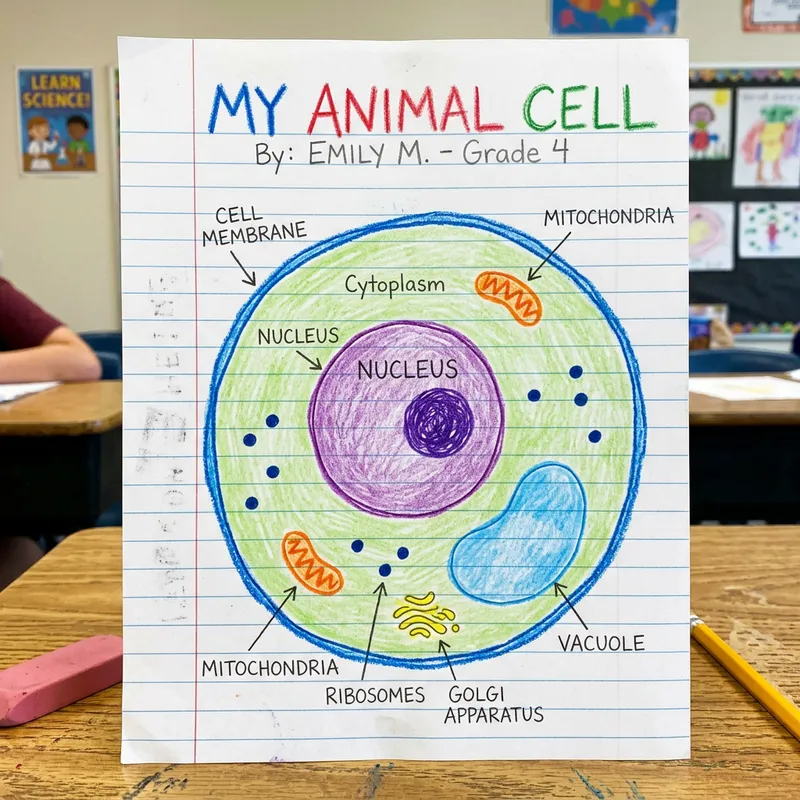 LEARN
SCIENCE!
MY ANIMAL CELL
By: EMILY M. – Grade 4
CELL
MEMBRANE
MITOCHONDRIA
Cytoplasm
NUCLEUS
NUCLEUS
MITOCHONDRIA
RIBOSOMES
GOLGI
APPARATUS
VACUOLE